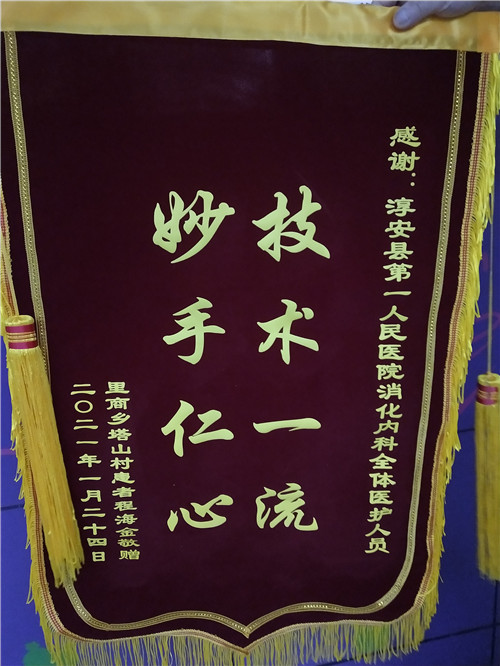 感谢：淳安县第一人民医院消化内科全体医护人员
技术一流
妙手仁心
里商乡塔山村患者程海金敬赠
二〇二一年一月二十四日